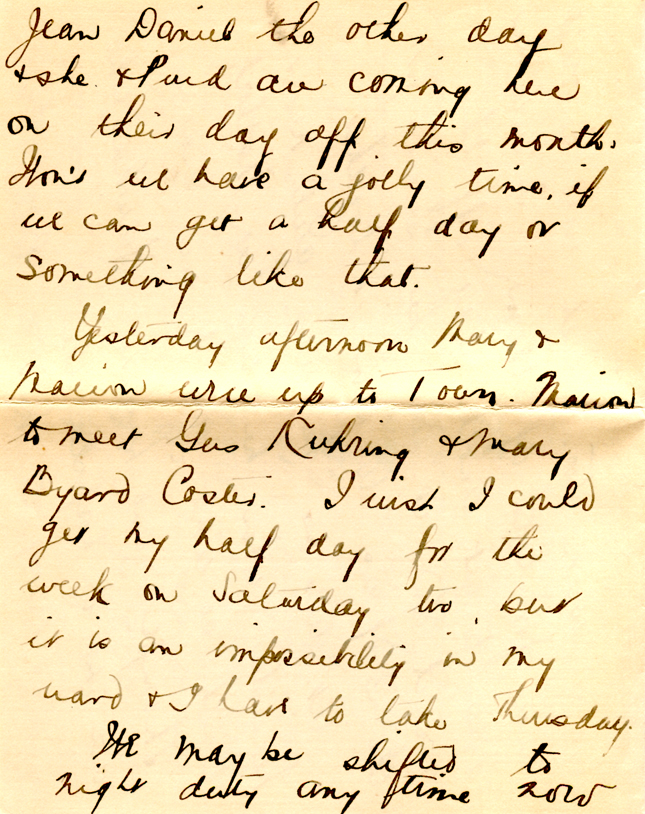 Jean Daniel the other day
& she & Purd are coming here
on their day off this month.
Won't we have a jolly time, if
we can get a half day or
something like that.
Yesterday afternoon Mary &
Marion were up to Town. Marion
to meet Gus Kuhring & Mary
Byard Coster. I wish I could
get my half day for the
week on Saturday too, but
it is an impossibility in my
ward & I have to take Thursday.
We may be shifted to
night duty any time now